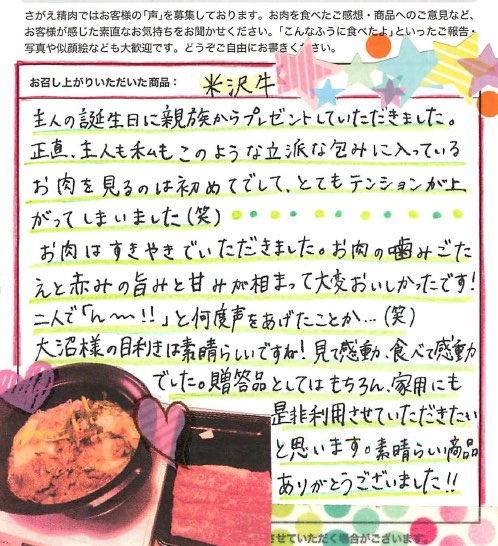 さがえ精肉ではお客様の「声」を募集しております。お肉を食べたご感想・商品へのご意見など、
お客様が感じた素直なお気持ちをお聞かせください。「こんなふうに食べたよ」といったご報告・
写真や似顔絵なども大歓迎です。どうぞご自由にお書きください。
お召し上がりいただいた商品： 米沢牛
主人の誕生日に親族からプレゼントしていただきました。
正直、主人も私もこのような立派な包みに入っている
お肉を見るのは初めてでして、とてもテンションが上
がってしまいました(笑)
お肉はすきやきでいただきました。お肉の噛みごた
えと赤みの旨みと甘みが相まって大変おいしかったです!
二人で「ん〜!!」と何度声をあげたことか…(笑)
大沼様の目利きは素晴らしいですね! 見て感動、食べて感動
でした。贈答品としてはもちろん、家用にも
是非利用させていただきたい
と思います。素晴らしい商品
ありがとうございました!!
させていただく場合がございます。